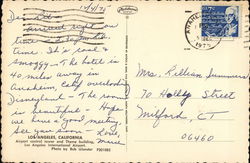 10/4/72
arrived right on
time
time. It's cool &
smoggy – The hotel is
40 miles away in
Anaheim, Calif overlooking
Disneyland – The room
is beautiful – Hope
we have a good meeting.
See you soon – Love,
Marie
LOS ANGELES, CALIFORNIA
Airport control tower and Theme building,
Los Angeles International Airport.
Photo by Bob Glander P301882
Mrs. Lillian Summers
70 Holly Street
Milford, CT
06460